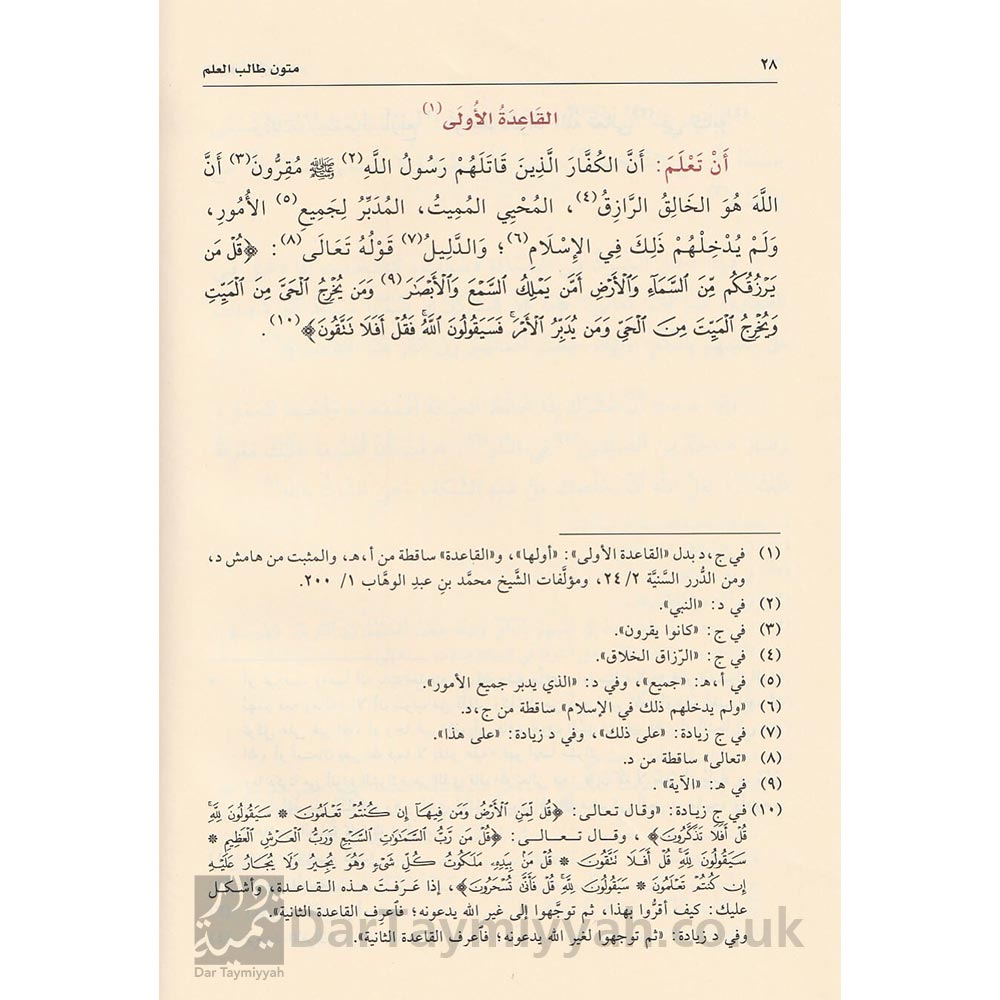 ٢٨
متون طالب العلم
القَاعِدَةُ الأُولَى(١)
أَنْ تَعْلَمَ: أَنَّ الكُفَّارَ الَّذِينَ قَاتَلَهُمْ رَسُولُ اللَّهِ(٢) ﷺ مُقِرُّونَ(٣) أَنَّ
اللَّهَ هُوَ الخَالِقُ الرَّازِقُ(٤)، المُحْيِي المُمِيتُ، المُدَبِّرُ لِجَمِيعِ(٥) الأُمُورِ،
وَلَمْ يُدْخِلْهُمْ ذَلِكَ فِي الإِسْلَامِ(٦)؛ وَالدَّلِيلُ(٧) قَوْلُهُ تَعَالَى(٨): ﴿قُلْ مَن
يَرْزُقُكُم مِّنَ السَّمَآءِ وَٱلْأَرْضِ أَمَّن يَمْلِكُ السَّمْعَ وَٱلْأَبْصَٰرَ(٩) وَمَن يُخْرِجُ ٱلْحَيَّ مِنَ ٱلْمَيِّتِ
وَيُخْرِجُ ٱلْمَيِّتَ مِنَ ٱلْحَيِّ وَمَن يُدَبِّرُ ٱلْأَمْرَ ۚ فَسَيَقُولُونَ ٱللَّهُ ۚ فَقُلْ أَفَلَا تَتَّقُونَ﴾(١٠).
(١) في ج،د بدل «القاعدة الأولى»: «أولها»، و«القاعدة» ساقطة من أ،هـ، والمثبت من هامش د،
ومن الدُّرر السَّنيَّة ٢/ ٢٤، ومؤلَّفات الشَّيخ محمَّد بنِ عبدِ الوهَّاب ١/ ٢٠٠.
(٢) في د: «النبي».
(٣) في ج: «كانوا يقرون».
(٤) في ج: «الرّزاق الخلاق».
(٥) في أ،هـ: «جميع»، وفي د: «الذي يدبر جميع الأمور».
(٦) «ولم يدخلهم ذلك في الإسلام» ساقطة من ج،د.
(٧) في ج زيادة: «على ذلك»، وفي د زيادة: «على هذا».
(٨) «تعالى» ساقطة من د.
(٩) في هـ: «الآية».
(١٠) في ج زيادة: «وقال تعالى: ﴿قُل لِّمَنِ ٱلْأَرْضُ وَمَن فِيهَآ إِن كُنتُمْ تَعْلَمُونَ * سَيَقُولُونَ لِلَّهِ ۚ
قُلْ أَفَلَا تَذَكَّرُونَ﴾، وقال تعالى: ﴿قُلْ مَن رَّبُّ ٱلسَّمَٰوَٰتِ ٱلسَّبْعِ وَرَبُّ ٱلْعَرْشِ ٱلْعَظِيمِ *
سَيَقُولُونَ لِلَّهِ ۚ قُلْ أَفَلَا تَتَّقُونَ * قُلْ مَنۢ بِيَدِهِۦ مَلَكُوتُ كُلِّ شَيْءٍ وَهُوَ يُجِيرُ وَلَا يُجَارُ عَلَيْهِ
إِن كُنتُمْ تَعْلَمُونَ * سَيَقُولُونَ لِلَّهِ ۚ قُلْ فَأَنَّىٰ تُسْحَرُونَ﴾، إذا عَرَفتَ هذه القاعدة، وأشكل
عليك: كيف أقرُّوا بهذا، ثم توجَّهوا إلى غير الله يدعونه؛ فٱعرِف القاعدة الثانية».
وفي د زيادة: «ثم توجهوا لغير الله يدعونه؛ فٱعرف القاعدة الثانية».
دار تيمية
Dar Taymiyyah
DarTaymiyyah.co.uk